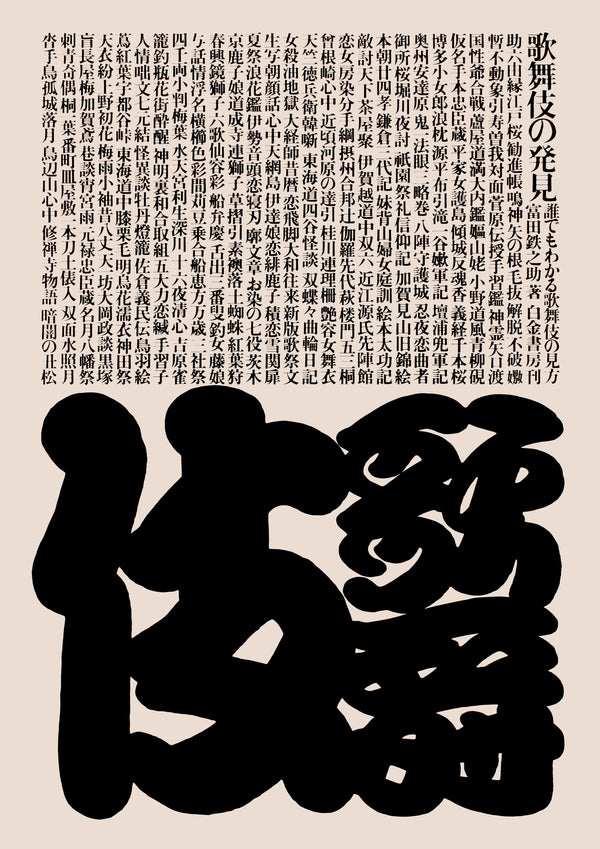 歌舞伎の発見
誰でもわかる歌舞伎の見方
富田鉄之助著 白金書房刊
助六由縁江戸桜 勧進帳 鳴神 矢の根 毛抜 解脱 不破 嫐
暫 不動 象引 寿曽我対面 菅原伝授手習鑑 神霊矢口渡
国性爺合戦 蘆屋道満大内鑑 嫗山姥 小野道風青柳硯
仮名手本忠臣蔵 平家女護島 傾城反魂香 義経千本桜
博多小女郎浪枕 源平布引滝 一谷嫩軍記 壇浦兜軍記
奥州安達原 鬼一法眼三略巻 八陣守護城 忍夜恋曲者
御所桜堀川夜討 祇園祭礼信仰記 加賀見山旧錦絵
本朝廿四孝 鎌倉三代記 妹背山婦女庭訓 絵本太功記
敵討天下茶屋聚 伊賀越道中双六 近江源氏先陣館
恋女房染分手綱 摂州合邦辻 伽羅先代萩 楼門五三桐
曽根崎心中 近頃河原の達引 桂川連理柵 艶容女舞衣
天竺徳兵衛韓噺 東海道四谷怪談 双蝶々曲輪日記
女殺油地獄 大経師昔暦 恋飛脚大和往来 新版歌祭文
生写朝顔話 心中天網島 伊達娘恋緋鹿子 積恋雪関扉
夏祭浪花鑑 伊勢音頭恋寝刃 廓文章 お染の七役 茨木
京鹿子娘道成寺 連獅子 草摺引 素襖落 土蜘蛛 紅葉狩
春興鏡獅子 六歌仙容彩 船弁慶 舌出三番叟 釣女 藤娘
与話情浮名横櫛 色彩間苅豆 乗合船恵方万歳 三社祭
四千両小判梅葉 水天宮利生深川 十六夜清心 吉原雀
籠釣瓶花街酔醒 神明恵和合取組 五大力恋緘 手習子
人情咄文七元結 怪異談牡丹燈籠 佐倉義民伝 鳥羽絵
蔦紅葉宇都谷峠 東海道中膝栗毛 明烏花濡衣 神田祭
天衣紛上野初花 梅雨小袖昔八丈 天一坊大岡政談 黒塚
盲長屋梅加賀鳶 巷談宵宮雨 元禄忠臣蔵 名月八幡祭
刺青奇偶 桐一葉 番町皿屋敷 一本刀土俵入 双面水照月
沓手鳥孤城落月 鳥辺山心中 修禅寺物語 暗闇の丑松
歌舞
伎